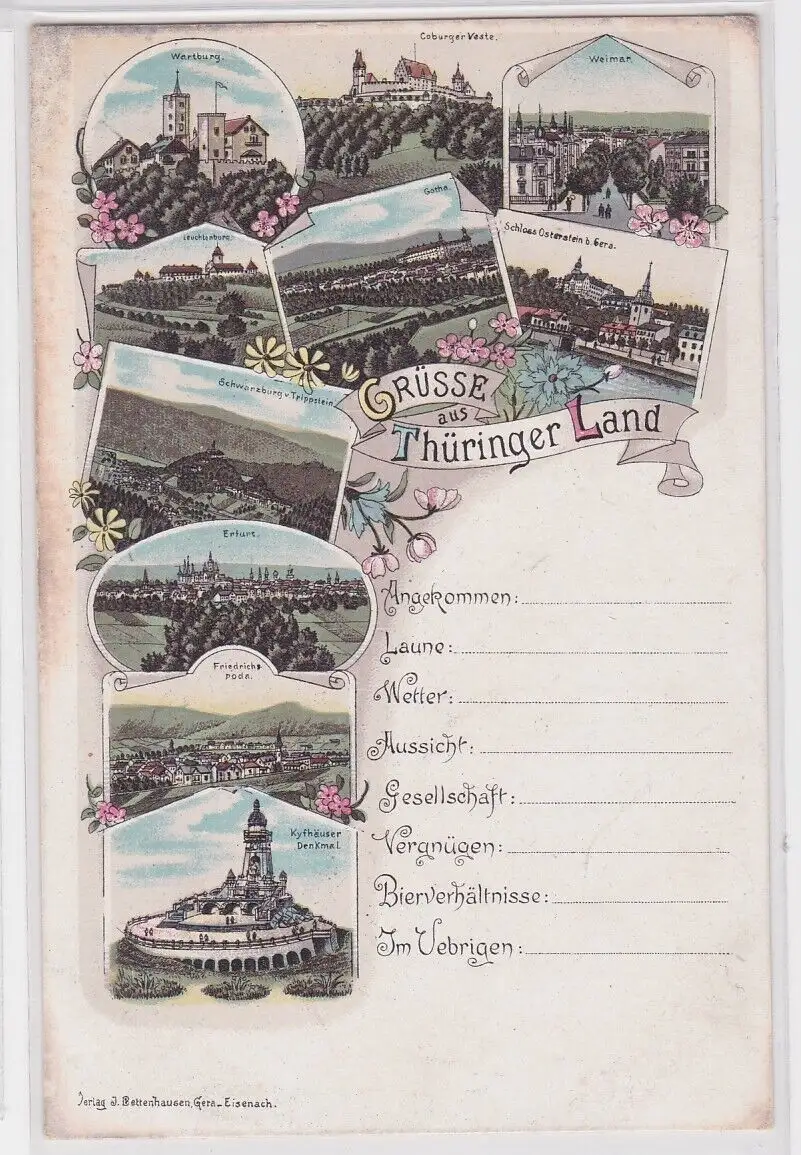 Wartburg.
Coburger Veste.
Weimar.
Leuchtenburg.
Gotha.
Schloss Osterstein b. Gera.
Schwarzburg v. Trippstein.
GRÜSSE
aus
Thüringer Land
Erfurt.
Friedrichs
roda.
Kyfhäuser
Denkmal.
Angekommen:
Laune:
Wetter:
Aussicht:
Gesellschaft:
Vergnügen:
Bierverhältnisse:
Im Uebrigen:
Verlag J. Bettenhausen, Gera-Eisenach.